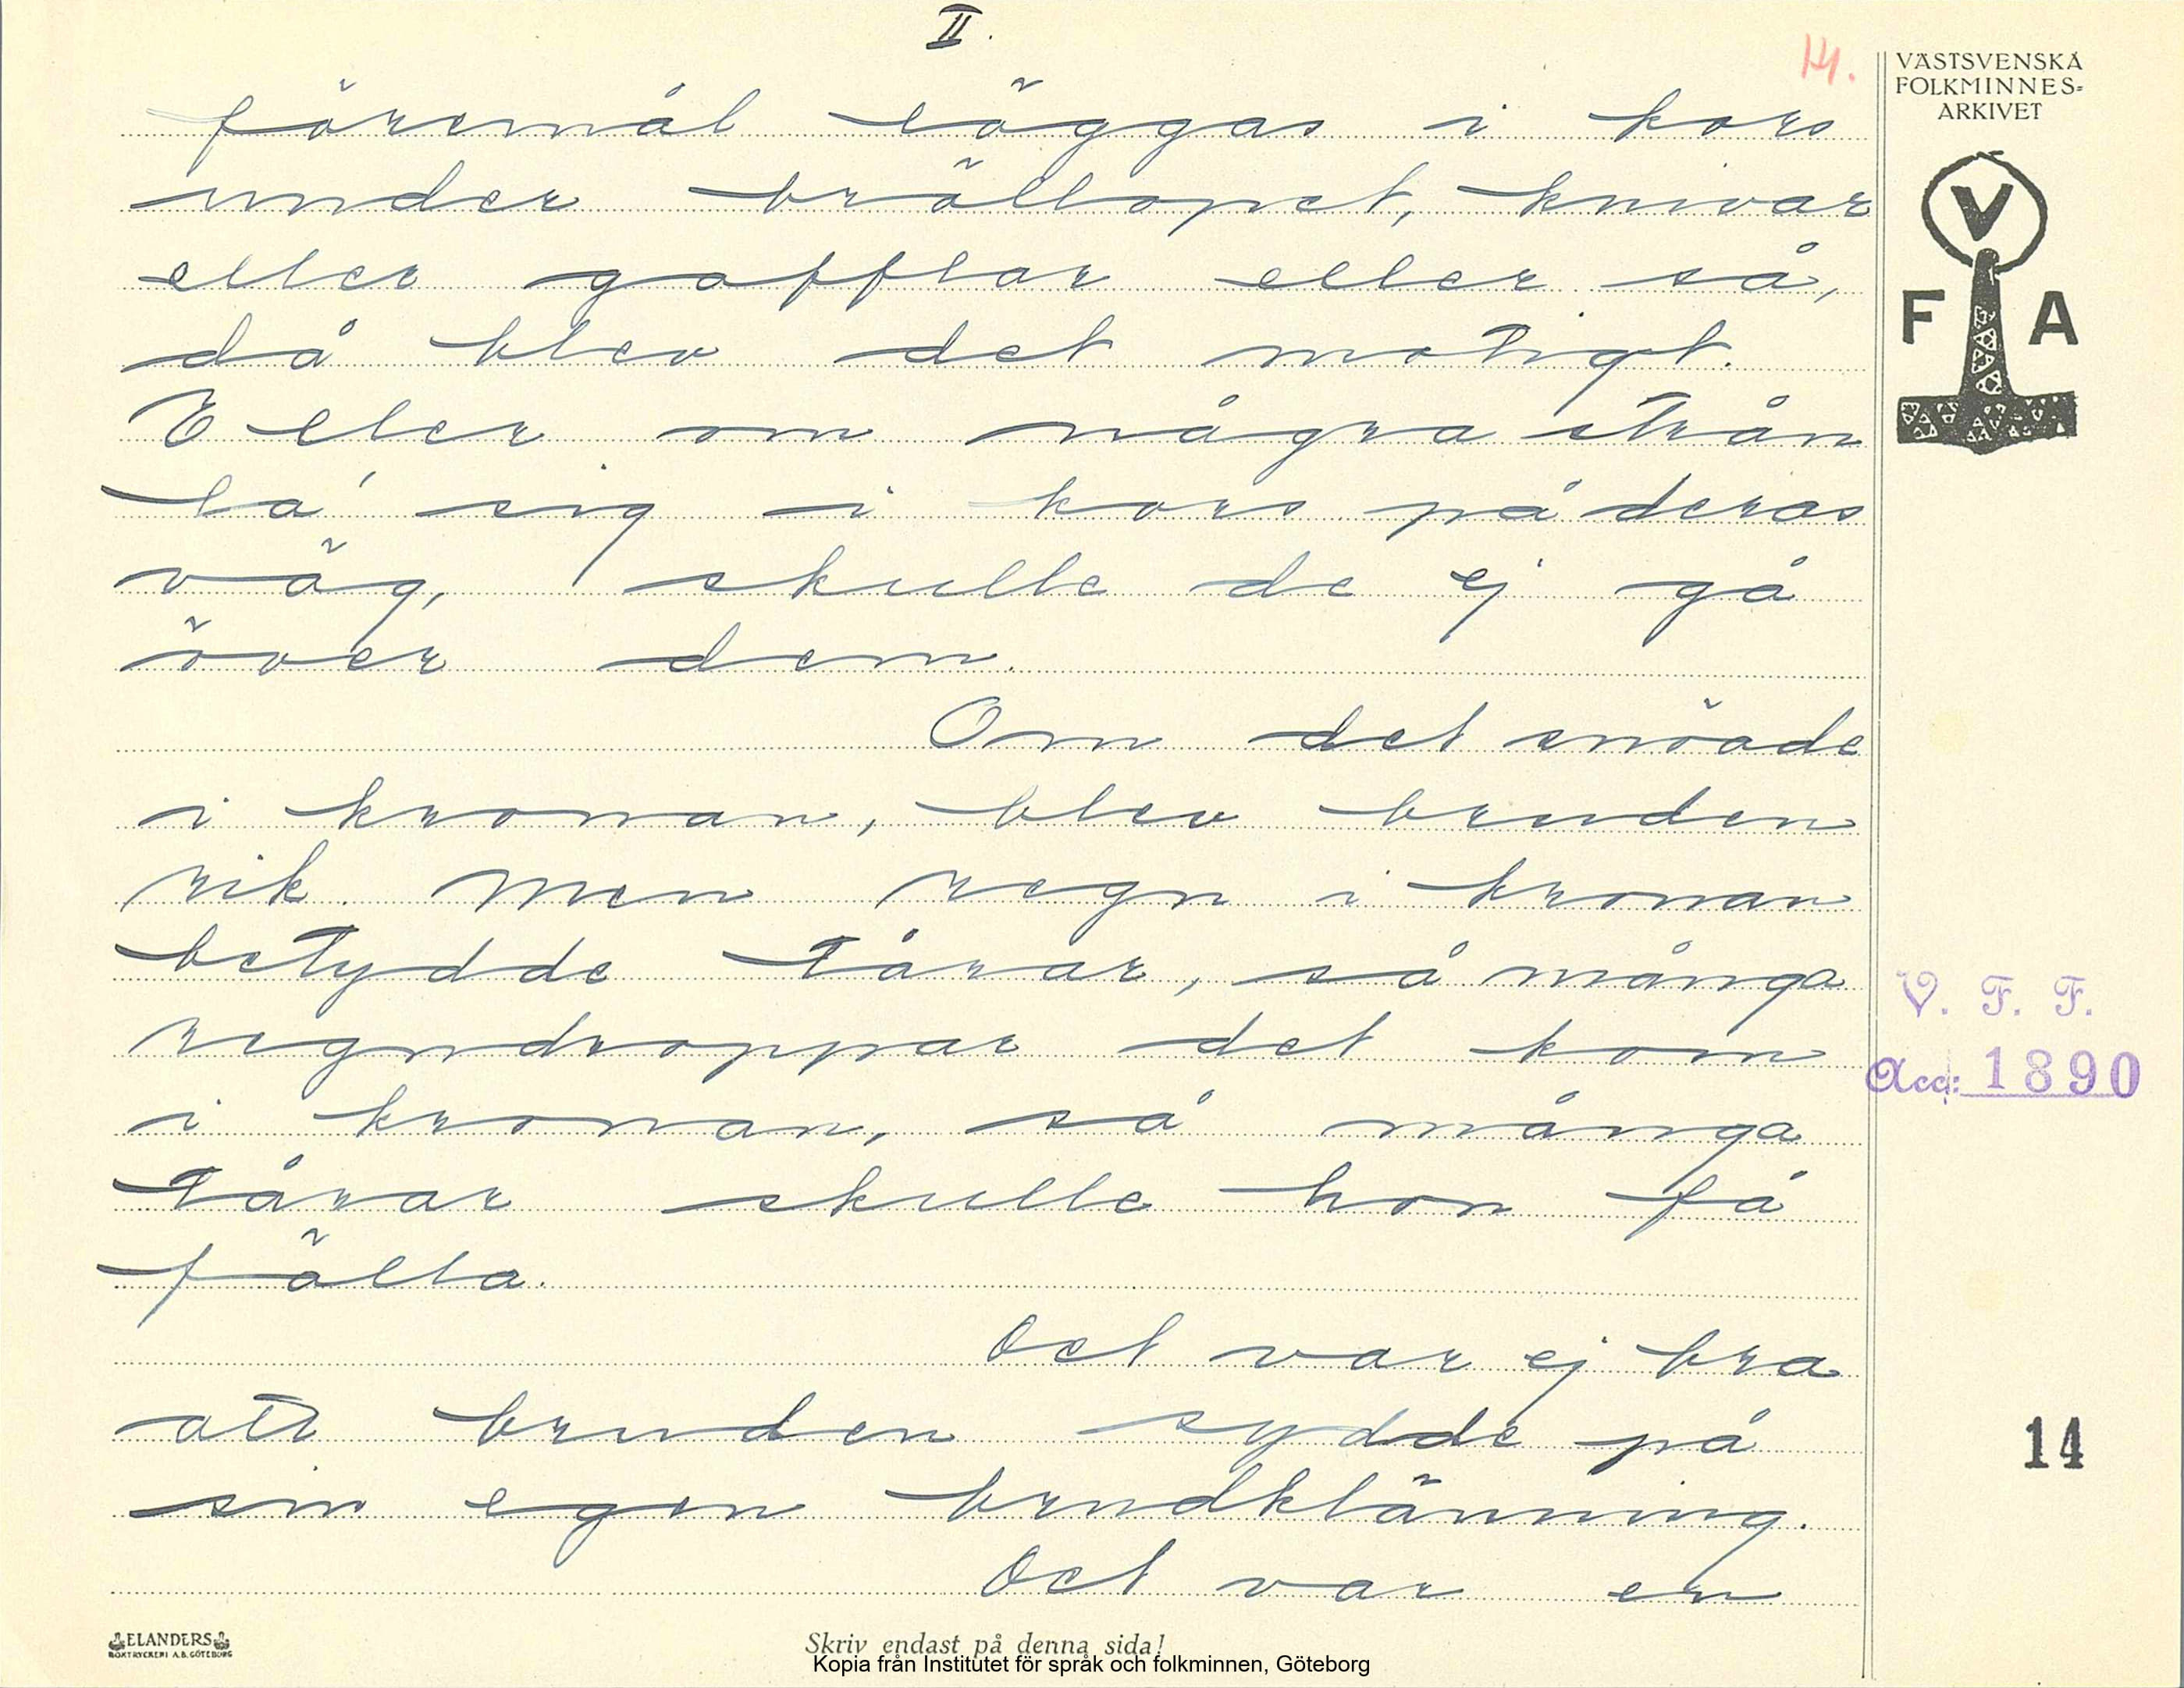 II.
14.
VÄSTSVENSKA
FOLKMINNES=
ARKIVET
V
F A
föremål läggas i kors
under bröllopet, knivar
eller gafflar eller så,
då blev det motigt.
Eller om några strån
la' sig i kors på deras
väg, skulle de ej gå
över dem.
Om det snöade
i kronan, blev bruden
rik. Men regn i kronan
betydde tårar, så många
regndroppar det kom
i kronan, så många
tårar skulle hon få
fälla.
Det var ej bra
att bruden sydde på
sin egen brudklänning.
Det var en
V. F. F.
Acc: 1890
14
ELANDERS
BOKTRYCKERI A.B. GÖTEBORG
Skriv endast på denna sida!
Kopia från Institutet för språk och folkminnen, Göteborg